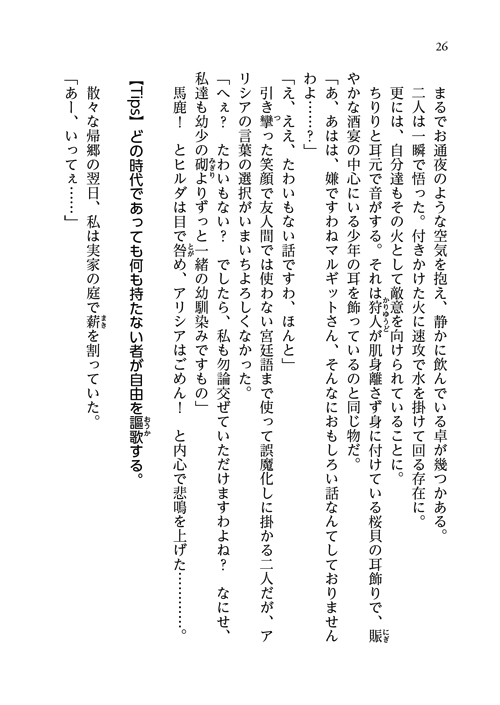 26
まるでお通夜のような空気を抱え、静かに飲んでいる卓が幾つかある。
二人は一瞬で悟った。付きかけた火に速攻で水を掛けて回る存在に。
更には、自分達もその火として敵意を向けられていることに。
ちりりと耳元で音がする。それは狩人が肌身離さず身に付けている桜貝の耳飾りで、賑
やかな酒宴の中心にいる少年の耳を飾っているのと同じ物だ。
「あ、あはは、嫌ですわねマルギットさん、そんなにおもしろい話なんてしておりません
わよ……？」
「え、ええ、たわいもない話ですわ、ほんと」
引き攣った笑顔で友人間では使わない宮廷語まで使って誤魔化しに掛かる二人だが、ア
リシアの言葉の選択がいまいちよろしくなかった。
「へぇ？　たわいもない？　でしたら、私も勿論交ぜていただけますわよね？　なにせ、
私達も幼少の砌よりずっと一緒の幼馴染みですもの」
馬鹿！　とヒルダは目で咎め、アリシアはごめん！　と内心で悲鳴を上げた…………。
【Tips】どの時代であっても何も持たない者が自由を謳歌する。
散々な帰郷の翌日、私は実家の庭で薪を割っていた。
「あー、いってぇ……」